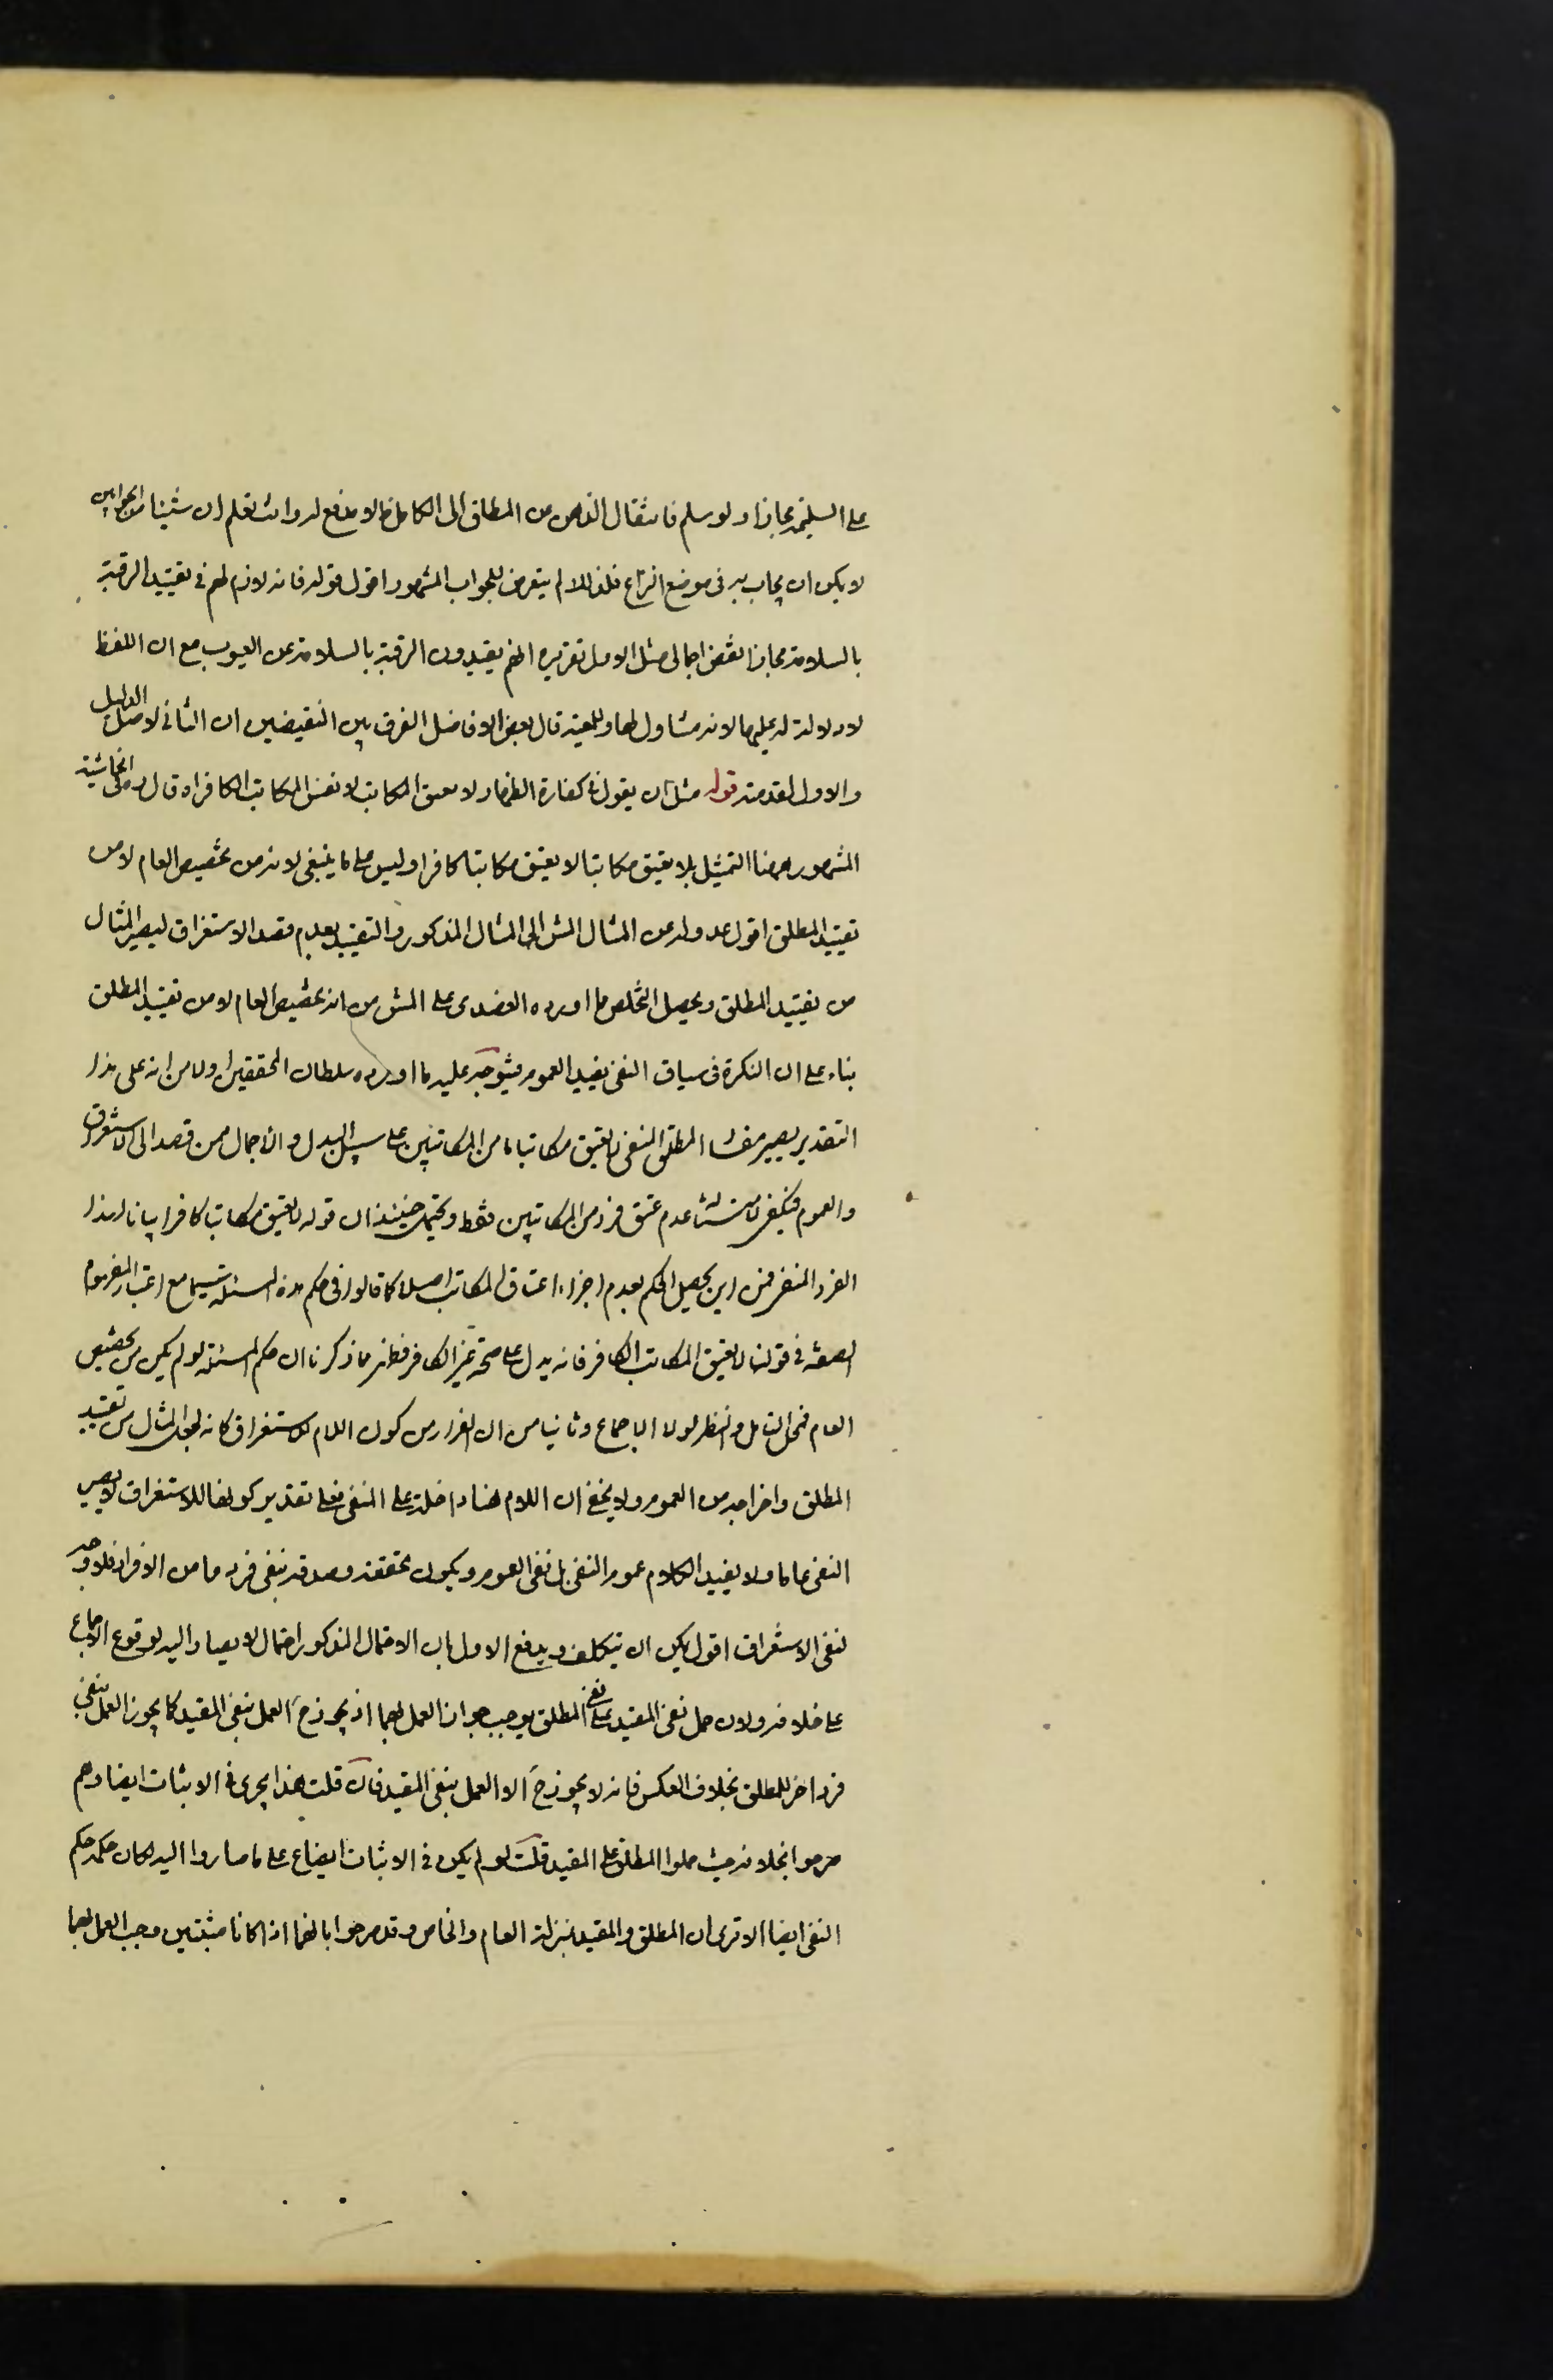 على السليمة مجازا ولو سلم فانتقال الذهن من المطلق الى الكامل مما لا مدفع له وانت تعلم ان شيئا من الجوابين
لا يمكن ان يجاب به فى موضع النزاع فلذلك لم يتعرض للجواب المشهور اقول قوله فانه لازم لهم فى تقييد الرقبة
بالسلامة مجازا نقض اجمالى مثل الاول تقريره انهم يقيدون الرقبة بالسلامة عن العيوب مع ان اللفظ
لا دلالة له عليها لانه متناول لها وللمعيبة قال بعض الافاضل الفرق بين النقيضين ان الثانى لاصل الدليل
والاول لمقدمته قوله مثل ان يقول فى كفارة الظهار لا تعتق المكاتب لا تعتق المكاتب الكافر اه قال فى الحاشية
المشهور ههنا التمثيل بلا يعتق مكاتبا لا يعتق مكاتبا كافرا وليس على ما ينبغى لانه من تخصيص العام لا من
تقييد المطلق اقول عدوله عن المثال المش الى المثال المذكور والتقييد بعدم قصد الاستغراق ليصير المثال
من تقييد المطلق ويحصل التخلص مما اورده العضدى على المش من انه تخصيص العام لا من تقييد المطلق
بناء على ان النكرة فى سياق النفى يفيد العموم فيتوجه عليه ما اورده سلطان المحققين اولا من انه على هذا
التقدير يصير معنى المطلق المنفى لا يعتق مكاتبا ما من المكاتبين على سبيل البدل والاجمال من قصد الى الاستغراق
والعموم فيكفى فى امتثاله عدم عتق فرد من المكاتبين فقط ويحتمل حينئذ ان قوله لا يعتق مكاتبا كافرا بيانا لهذا
الفرد المنفى فمن اين يحصل الحكم بعدم اجزاء اعتاق المكاتب اصلا كما قالوا فى حكم هذه المسئلة سيما مع اعتبار المفهوم
الصفة فى قولنا لا يعتق المكاتب الكافر فانه يدل على صحة غير الكافر فظهر مما ذكرنا ان حكم المسئلة لو لم يكن من تخصيص
العام فمحل التامل والنظر لولا الاجماع وثانيا من ان الفرار من كون اللام للاستغراق كانه لجعل المثال من تقييد
المطلق واخراجه من العموم ولا يخفى ان اللام هنا داخلة على المنفى فعلى تقدير كونها للاستغراق لا يصير
النفى عاما ولا يفيد الكلام عموم النفى بل نفى العموم ويكون تحققه وصدقه بنفى فرد ما من الافراد فلا وجه
لنفى الاستغراق اقول يمكن ان يتكلف ويدفع الاول بان الاحتمال المذكور احتمال لا يصار اليه لوقوع الاجماع
على خلافه ولان حمل نفى المقيد على نفى المطلق يوجب جواز العمل بهما اذ يجوز ح العمل بنفى المقيد كما يجوز العمل بنفى
فرد اخر للمطلق بخلاف العكس فانه لا يجوز ح الا العمل بنفى المقيد فان قلت هذا يجرى فى الاثبات ايضا وهم
صرحوا بخلافه حيث حملوا المطلق على المقيد قلت لو لم يكن فى الاثبات ايضا ع على ما صاروا اليه لكان حكمه حكم
النفى ايضا الا ترى ان المطلق والمقيد بمنزلة العام والخاص وقد صرحوا بانهما اذا كانا مثبتين وجب العمل بهما